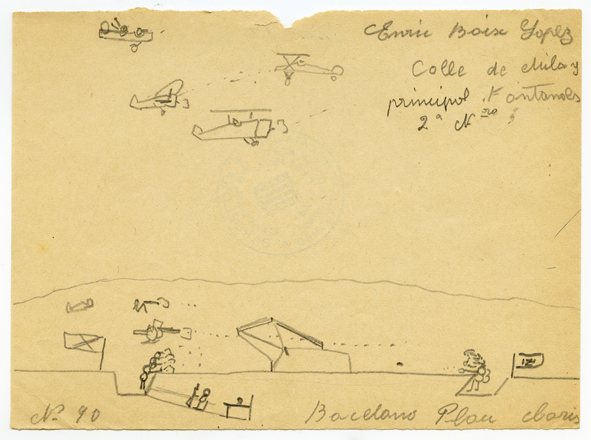 Enric Boix Lopez
Calle de Mila y
principal Fontanals
2ª Nro
Nº 90
Bacelano Plau claris